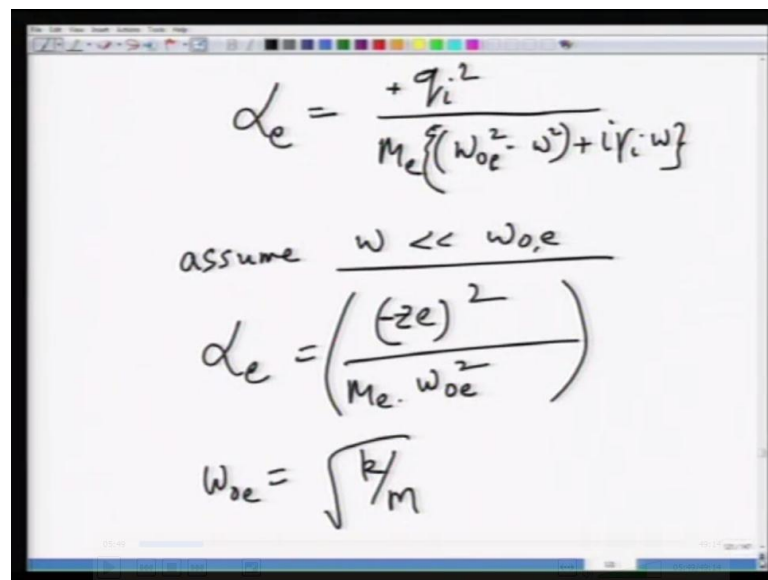 File Edit View Insert Actions Tools Help
αe = + qi² / me{(ω0e² - ω²) + iγi·ω}
assume ω << ω0,e
αe = ( (-ze)² / me. ω0e² )
ω0e = √(k/m)